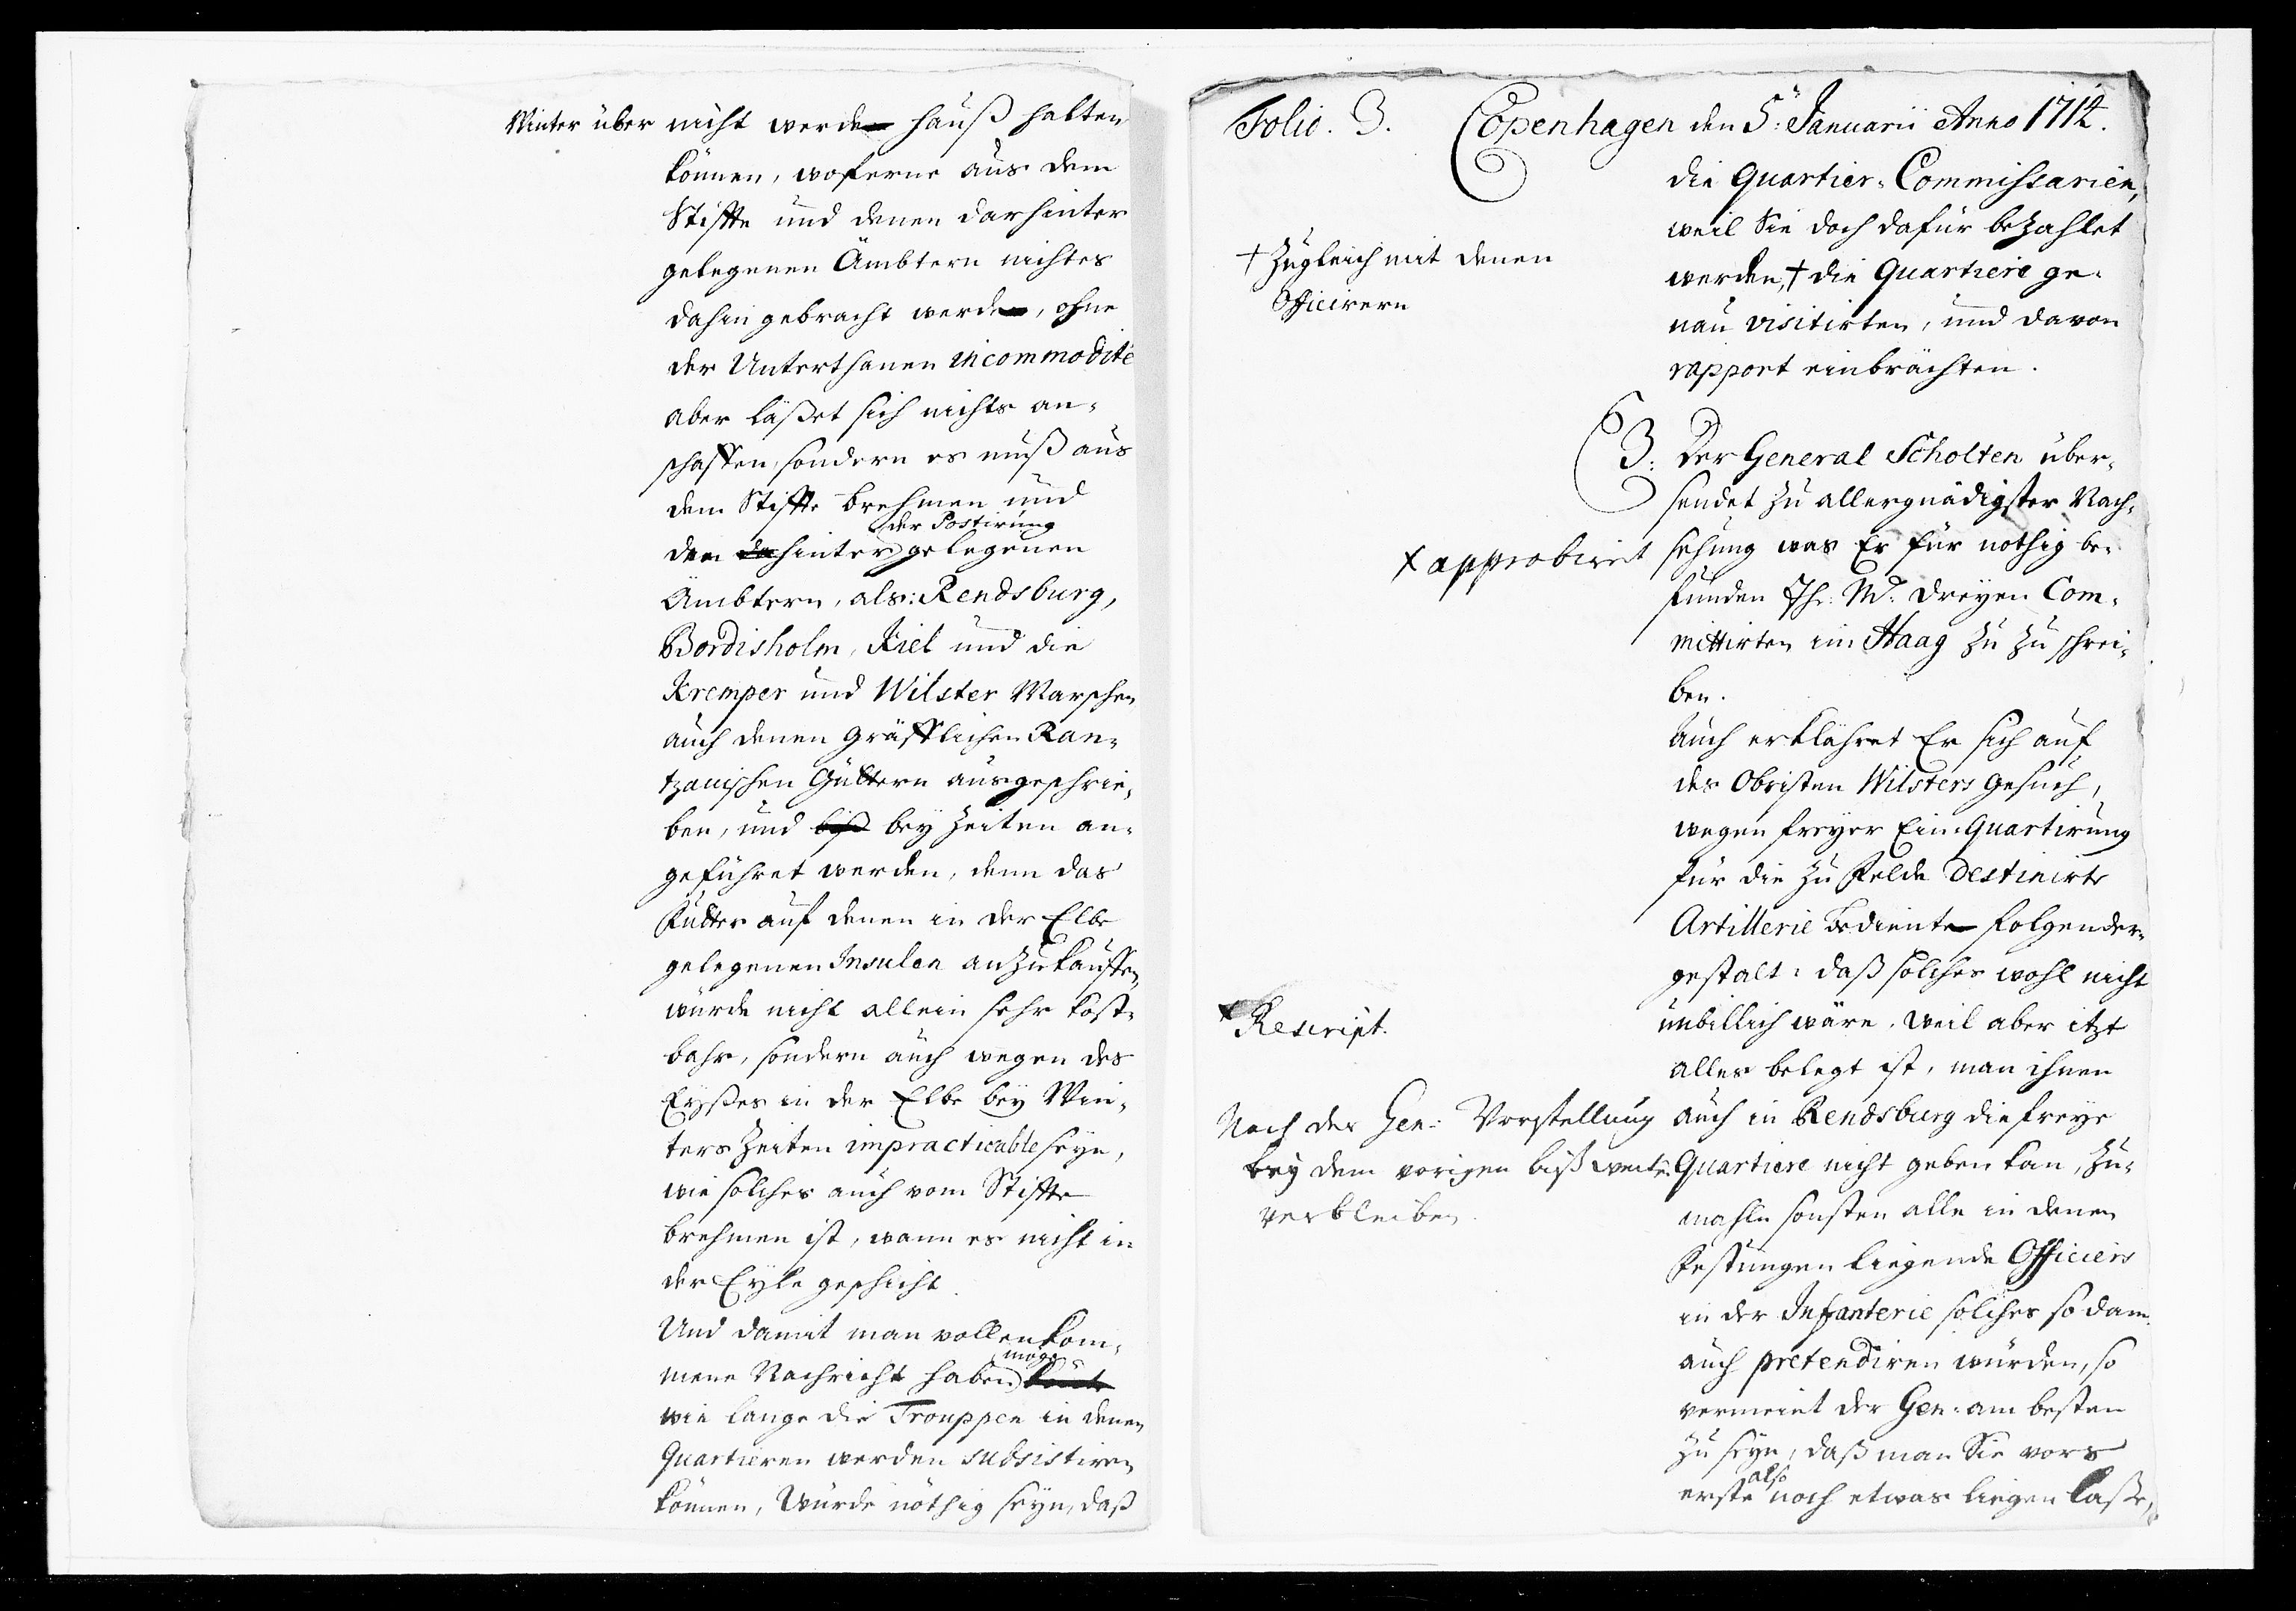 Winter über nicht werden hauß halten
können, woferne aus dem
Stiffte und denen darhinter
gelegenen Ämbtern nichtes
dahin gebracht werden, ohne
der Unterthanen incommodité
aber läßet sich nichts an-
schaffen, sondern es muß aus
dem Stiffte Brehmen und
der Postirung
den hinter gelegenen
Ämbtern, als: Rendsburg,
Bordisholm, Kiel und die
Kremper und Wilster Marschen
auch denen Gräfflichen Ran-
tzauischen Gühtern ausgeschrie-
ben, und biß bey Zeiten an-
geführet werden, denn das
Futter auf denen in der Elbe
gelegenen Insulen anzukauffen,
würde nicht allein sehr kost-
bahr, sondern auch wegen des
Eyßes in der Elbe bey Win-
ters Zeiten impracticable seyn,
wie solches auch vom Stiffte
Brehmen ist, wann es nicht in
der Eyle geschicht.
Und damit man vollenkom-
möge
mene Nachricht haben könte
wie lange die Trouppen in denen
Quartieren werden subsistiren
können, Würde nöthig seyn, daß
Folio. 3. Copenhagen den 5: Januarii Anno 1712.
die Quartier-Commissarien,
weil Sie doch dafür bezahlet
werden, † die Quartiere ge-
nau visitirten, und davon
rapport einbrächten.
† Zugleich mit denen
Officirern
3. Der General Scholten über-
sendet zu allergnädigster Nach-
sehung was Er für nöthig be-
funden Ihr: M: dreyen Com-
mittirten im Haag zu zu schrei-
ben.
x approbiret
Auch erklähret Er sich auf
des Obristen Wilsters Gesuch,
wegen freyer Ein-Quartirung
für die zu Felde destinirte
Artillerie Bediente folgender-
gestalt: daß solches wohl nicht
unbillich wäre. Weil aber itzt
alles belegt ist, man ihnen
auch in Rendsburg die freye
Quartiere nicht geben kan, zu-
mahln sonsten alle in denen
Festungen liegende Officiers
in der Infanterie solches so dann
auch pretendiren würden, so
vermeint der Gen: am besten
zu seyn, daß man Sie vors
also
erste noch etwas liegen laße,
x Rescript.
Nach des Gen: Vorstellung
bey dem vorigen biß weiter
verbleiben.